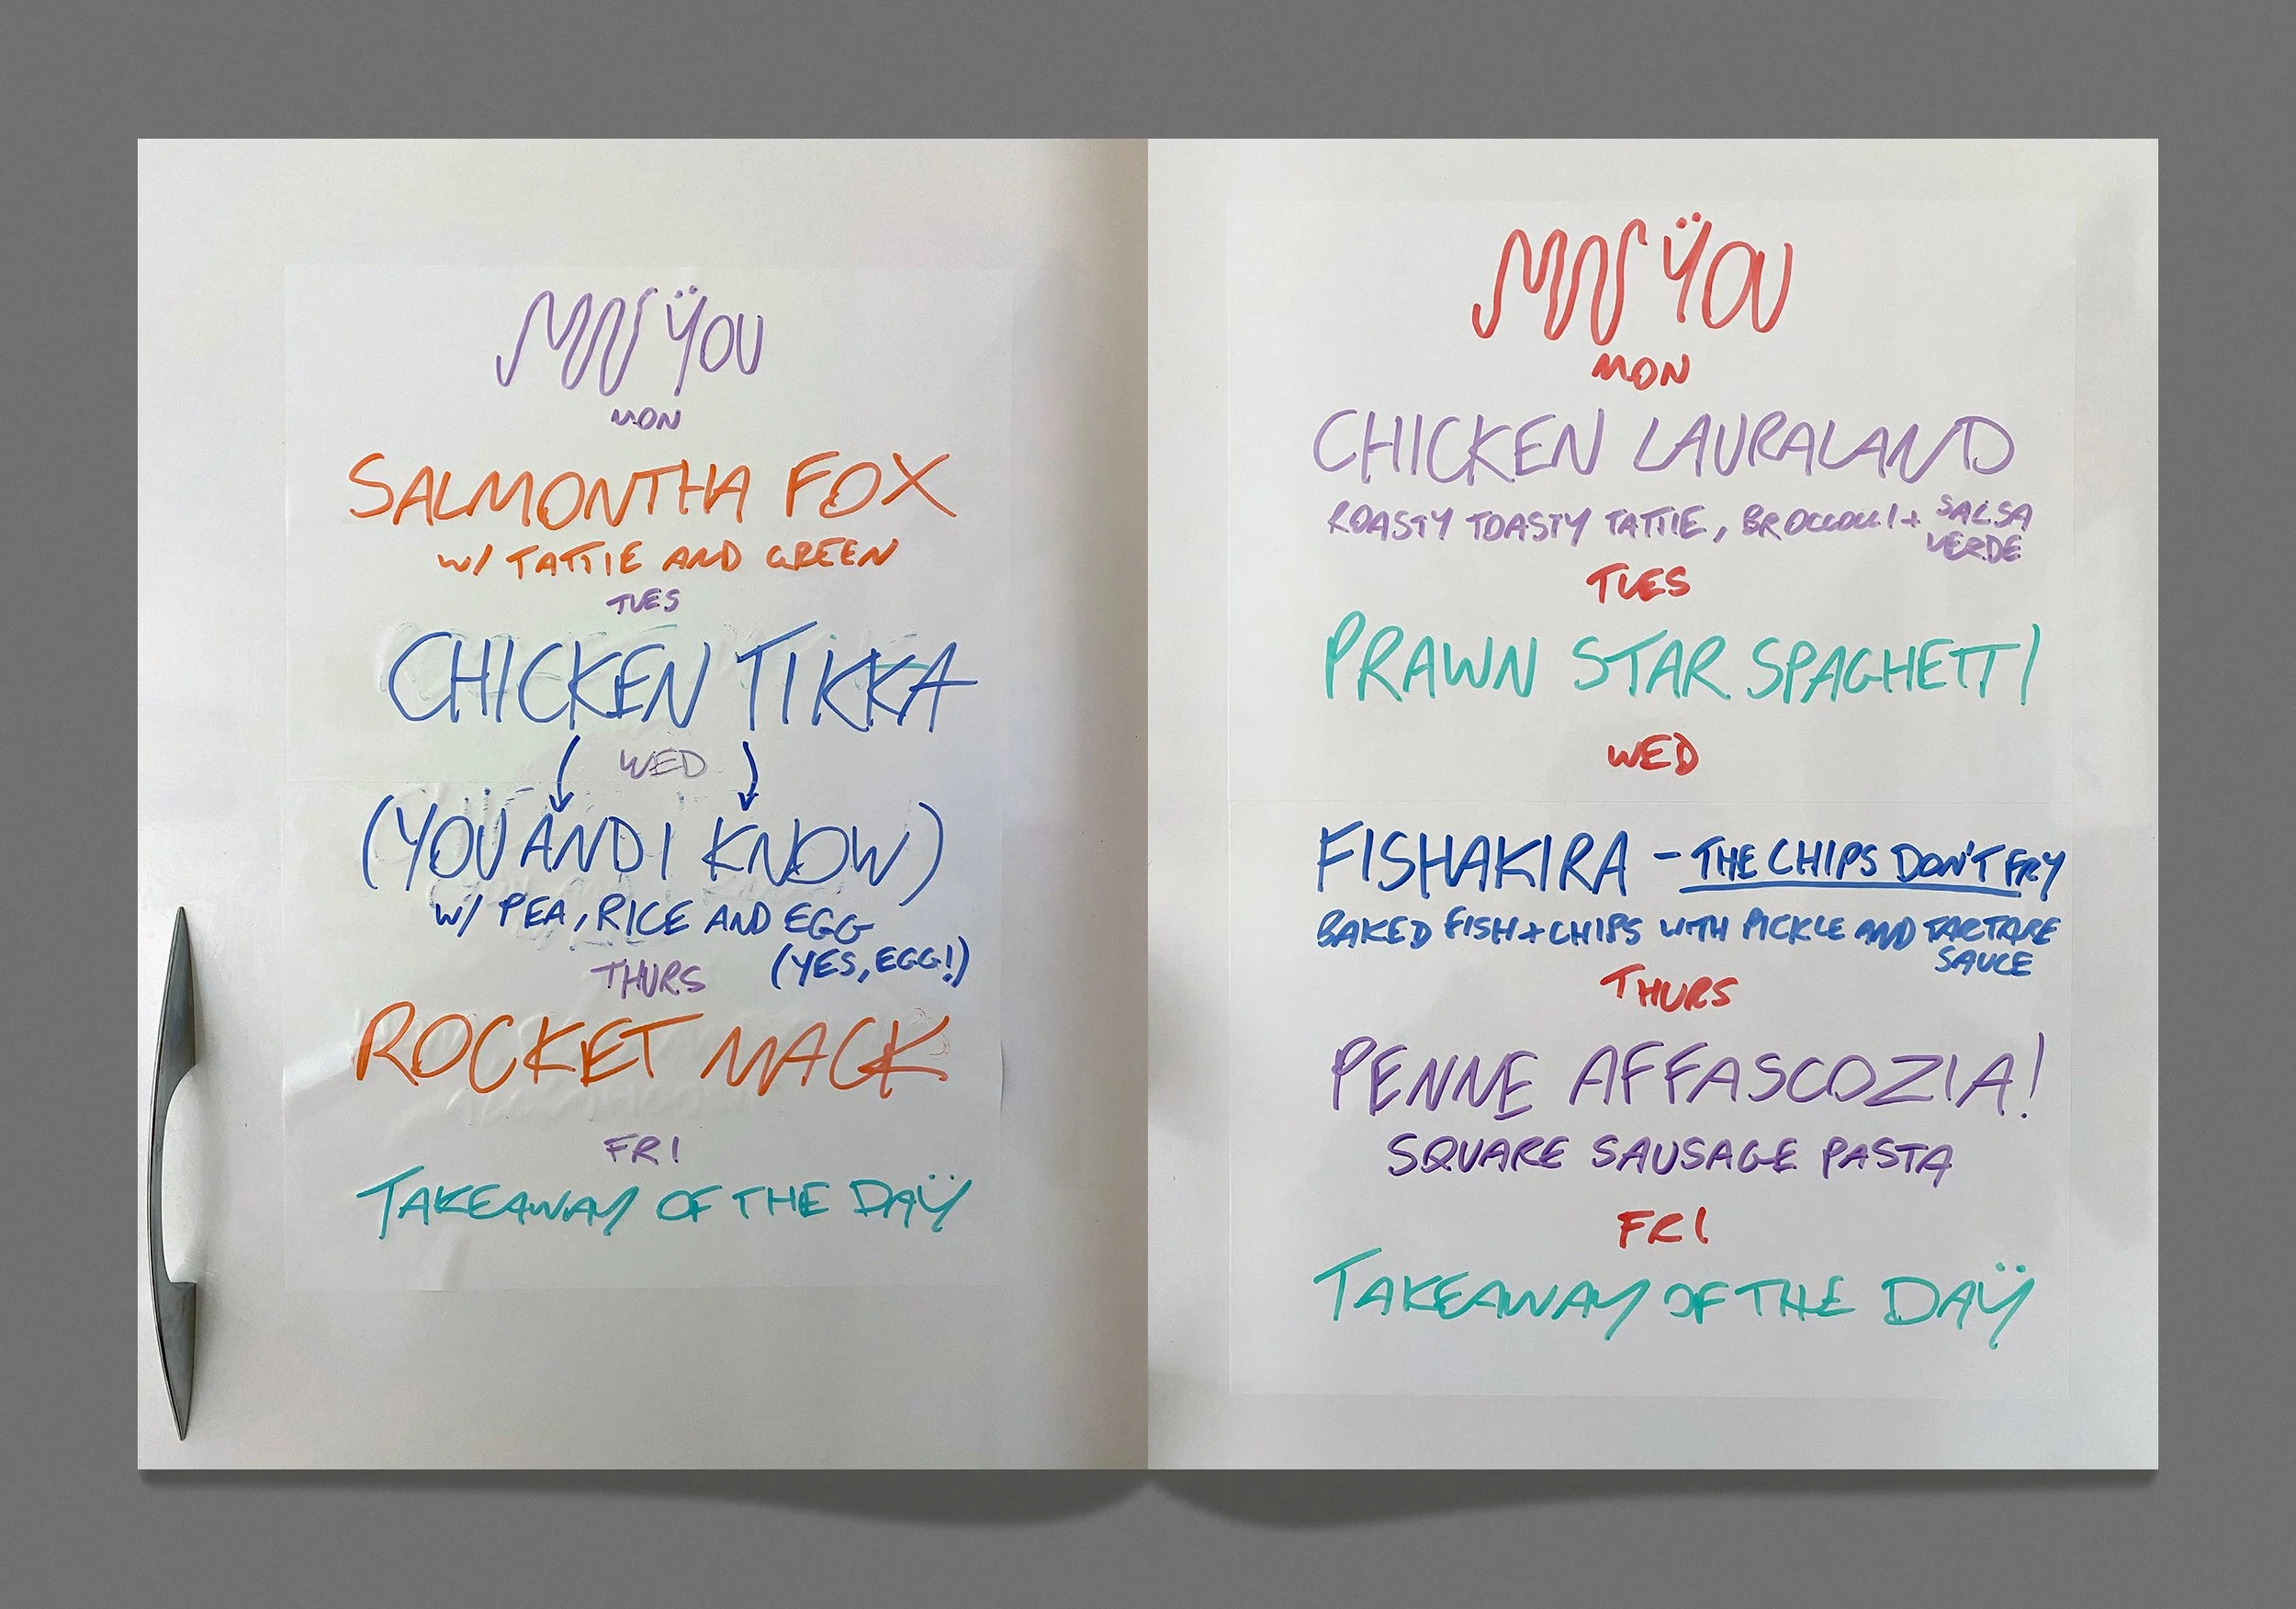 MNÿOU
MON
SALMONTHA FOX
W/ TATTIE AND GREEN
TUES
CHICKEN TIKKA
WED
(YOU AND I KNOW)
W/ PEA, RICE AND EGG
(YES, EGG!)
THURS
ROCKET MACK
FRI
TAKEAWAY OF THE DAŸ
MNŸOU
MON
CHICKEN LAURALAND
ROASTY TOASTY TATTIE, BROCCOLI + SALSA
VERDE
TUES
PRAWN STAR SPAGHETTI
WED
FISHAKIRA - THE CHIPS DON'T FRY
BAKED FISH + CHIPS WITH PICKLE AND TARTARE
SAUCE
THURS
PENNE AFFASCOZIA!
SQUARE SAUSAGE PASTA
FRI
TAKEAWAY OF THE DAŸ